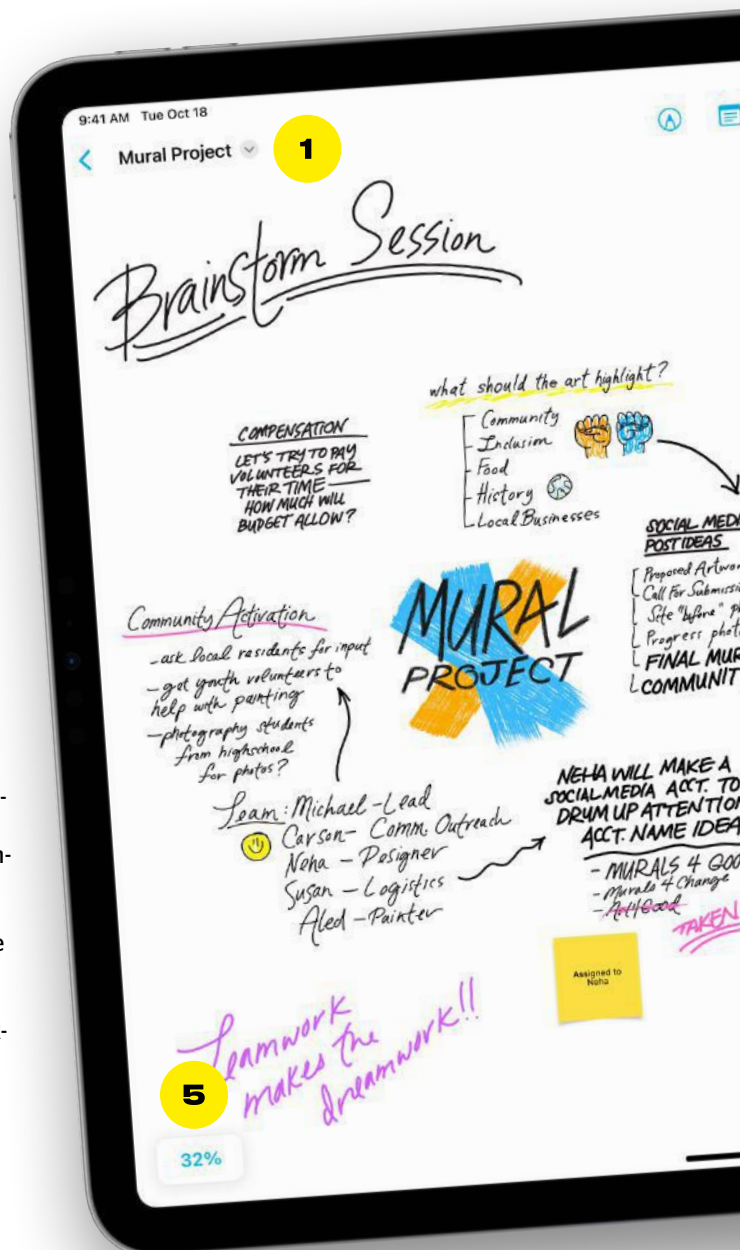 9:41 AM Tue Oct 18
Mural Project
1
Brainstorm Session
what should the art highlight?
Community
Inclusion
Food
History
Local Businesses
COMPENSATION
LET'S TRY TO PAY
VOLUNTEERS FOR
THEIR TIME —
HOW MUCH WILL
BUDGET ALLOW?
SOCIAL MEDI
POST IDEAS
Proposed Artwor
Call For Submissi
Site "before" p
Progress phot
FINAL MUR
COMMUNIT
MURAL
PROJECT
Community Activation
- ask local residents for input
- get youth volunteers to
help with painting
- photography students
from highschool
for photos?
Team: Michael - Lead
Carson - Comm. Outreach
Neha - Designer
Susan - Logistics
Aled - Painter
NEHA WILL MAKE A
SOCIAL MEDIA ACCT. TO
DRUM UP ATTENTION
ACCT. NAME IDEA
- MURALS 4 GOO
- Murals 4 Change
- Art4Good
TAKEN
Assigned to
Neha
Teamwork
makes the
dreamwork!!
5
32%